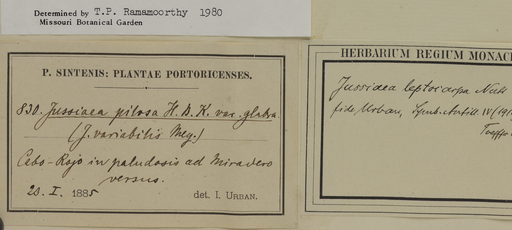 Determined by T.P. Ramamoorthy 1980
Missouri Botanical Garden
P. SINTENIS: PLANTAE PORTORICENSES.
830. Jussiaea pilosa H. B. K. var. glabra.
(J. variabilis Mey.)
Cabo-Rojo in paludosis ad Miradero
versus.
20. I. 1885 det. I. URBAN.
HERBARIUM REGIUM MONAC
Jussiaea leptocarpa Nutt
fide Urban, Symb. Antill. IV (191